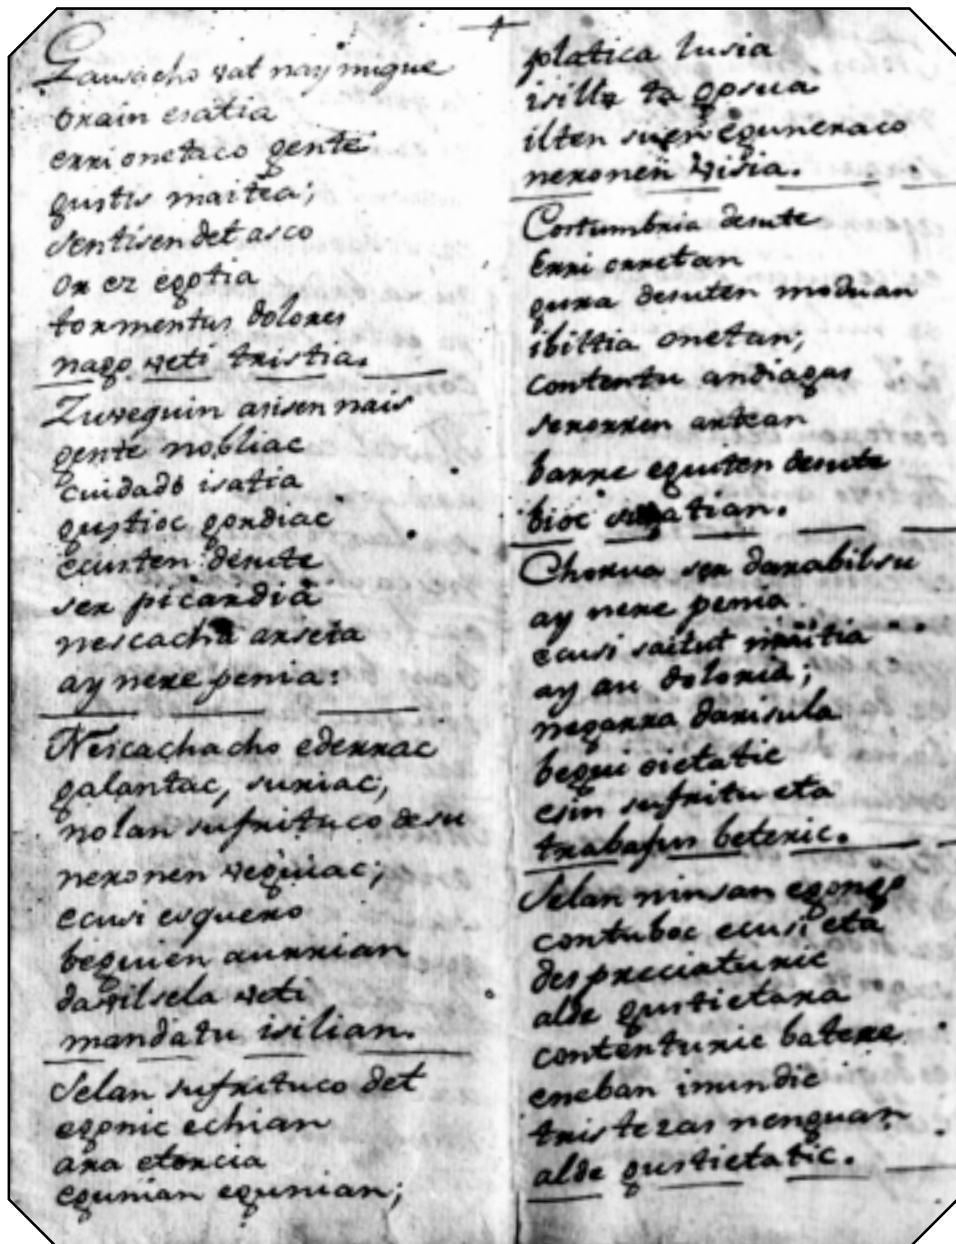 Gausacho vat nay nuque
orain esatia
erri onetaco gente
gustis maitea;
sentisen det asco
or ez egotia
tormentus dolores
nago veti tristia.
Zuvequin arisen nais
gente nobliac
cuidado isatia
gustioc gordiac
ecusten desute
ser picardia
nescacha arseta
ay nere penia:
Nescachacho ederrac
galantac, suriac;
nolan sufrituco desu
neronen veguiac;
ecusi esquero
beguien aurrian
davilsela veti
mandatu isilian.
Selan sufrituco det
egonic echian
ara etorcia
egunian egunian;
platica lusia
isillz ta gosua
ilten suen eguneraco
neronen visia.
Costumbria desute
Erri orretan
gura desuten moduan
ibiltia onetan,
contentu andiagas
seroren artean
barre eguiten desute
bioc
Chorua ser darabilsu
ay nere penia
ecusi saitut
ay au doloria;
negarra darisula
begui oietatic
esin sufritu eta
trabajus beteric.
Selan ninsan egongo
contuboc ecusi eta
despreciaturic
alde gustietara
contenturic batere
eneban imundic
tristezas nenguan
alde gustietatic.